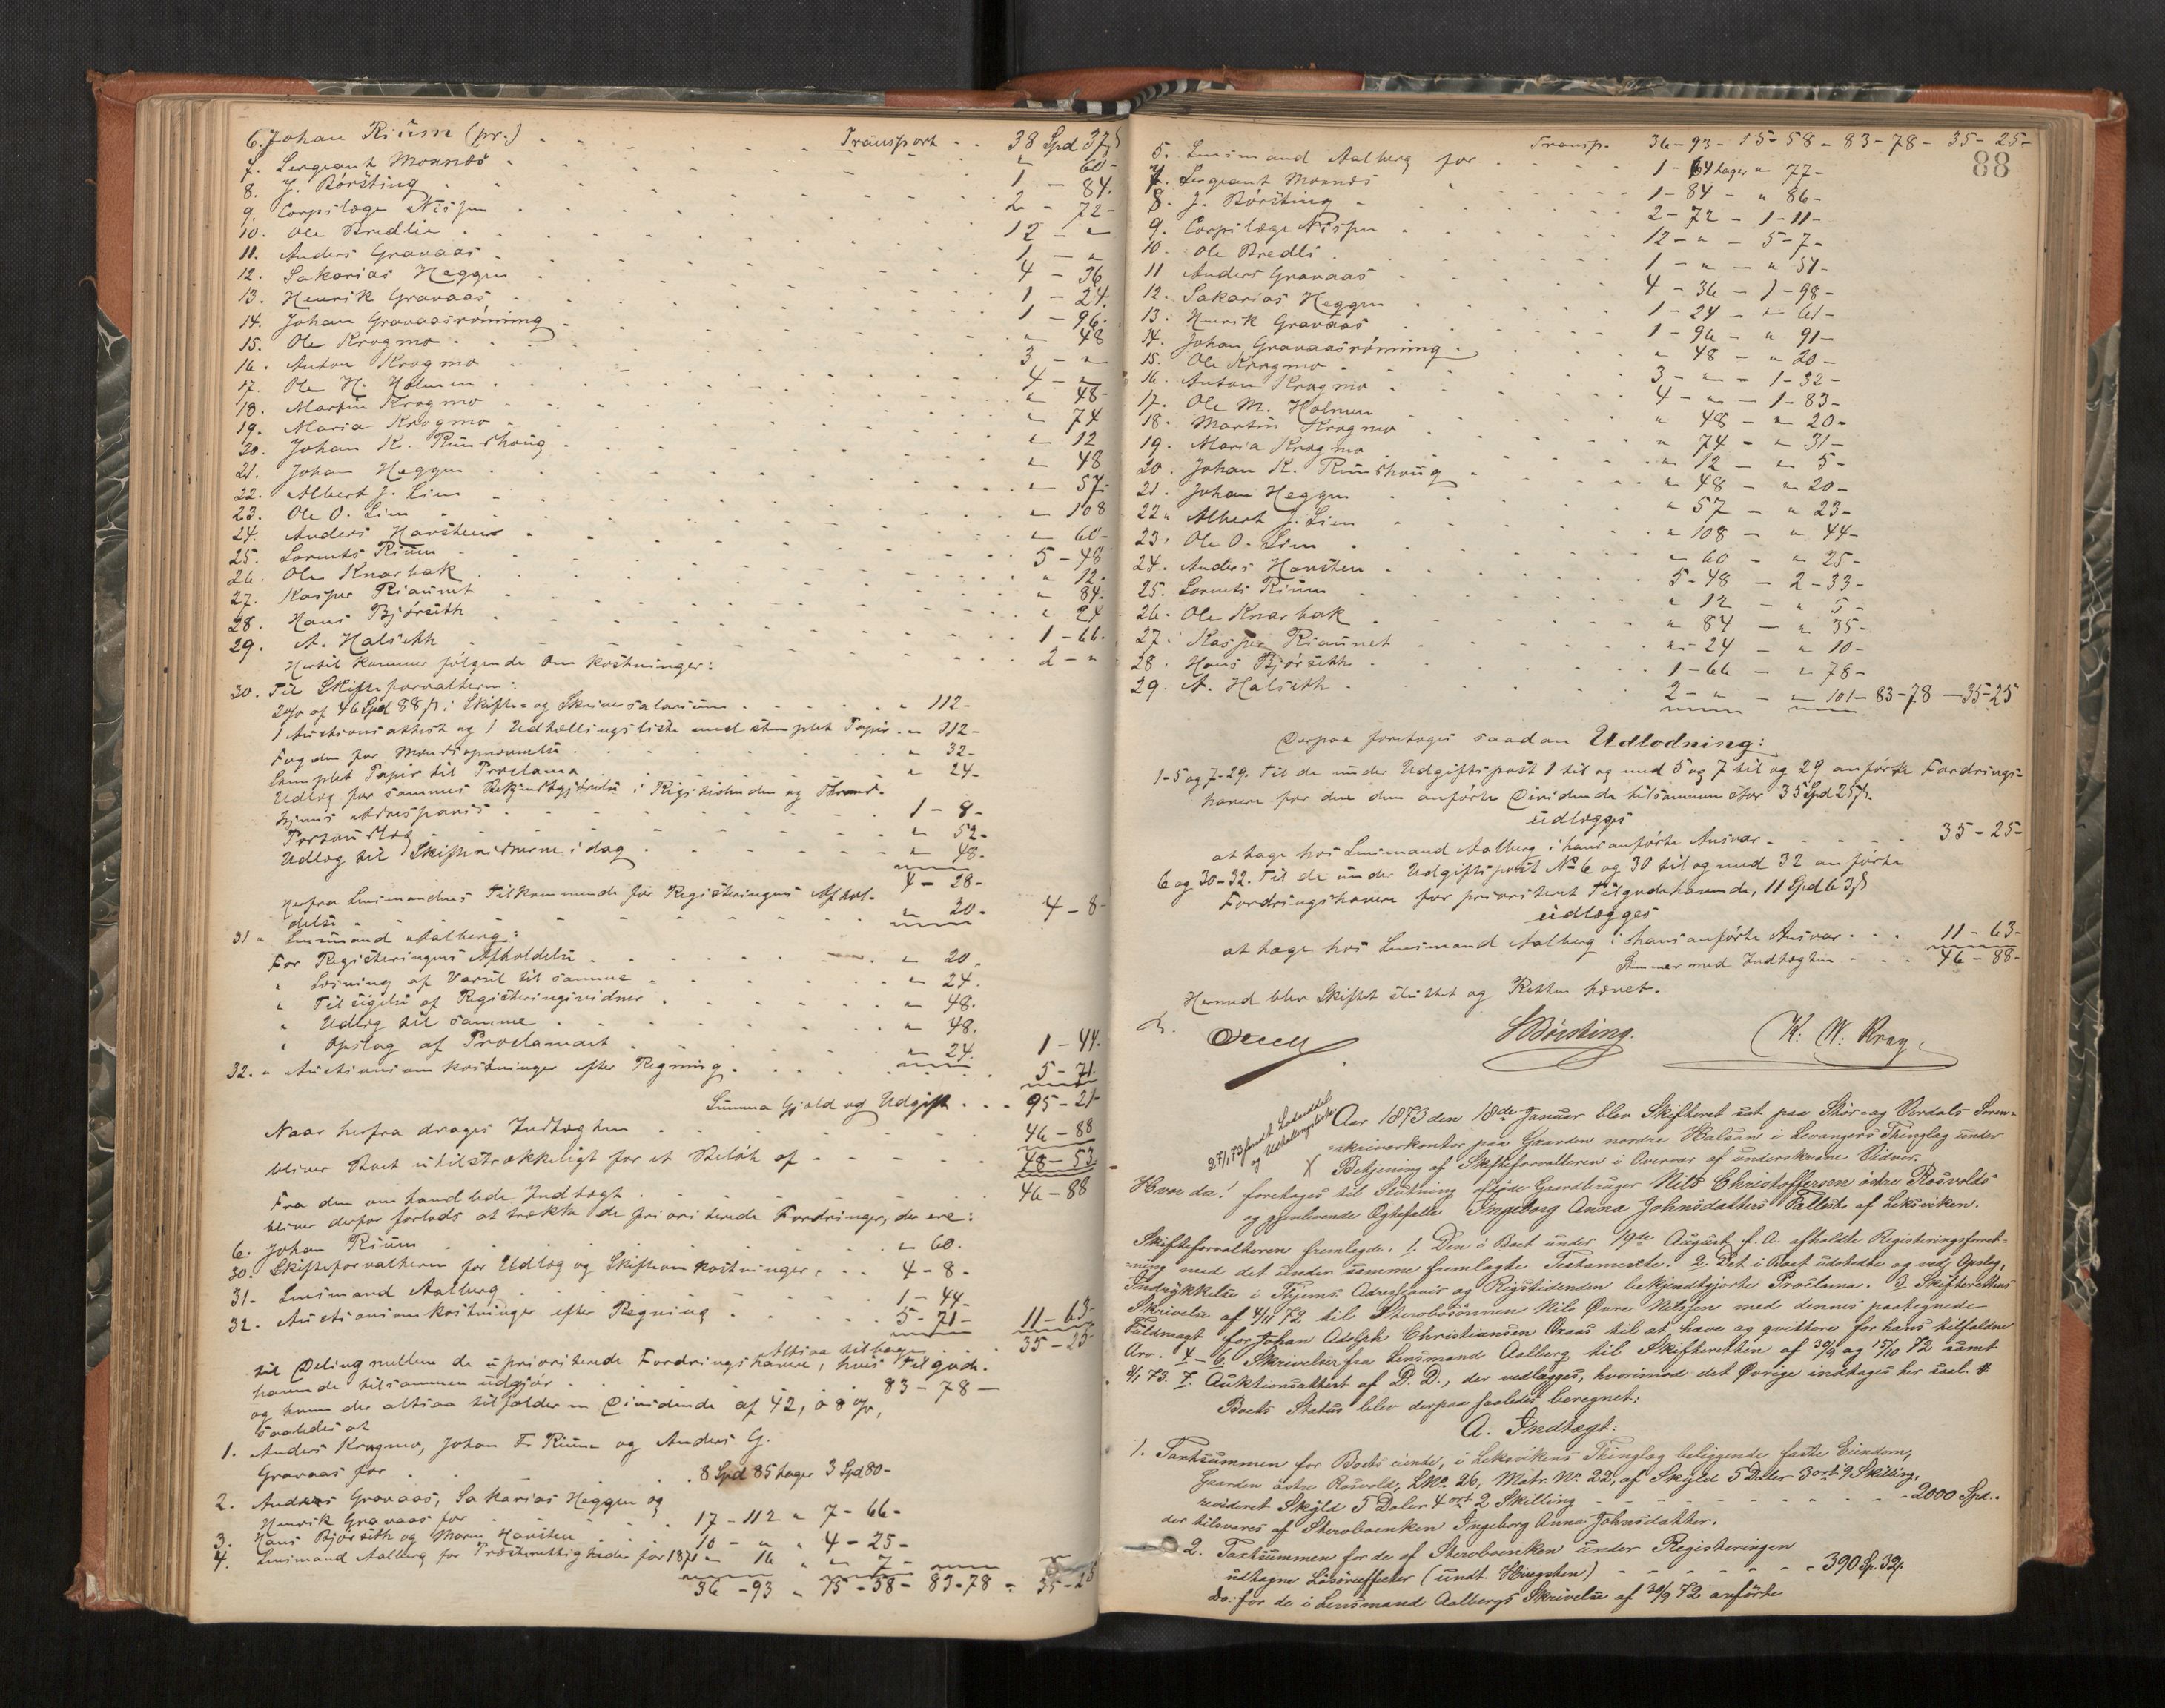 Transport . . 38 Spd 37 ß
6. Johan Riium (pr.) . . " 60-
7. Sergeant Moxnæs . 1 - 84.
8. J. Börsting . 2 - 72-
9. Corpslæge Nissen 12 - "
10. Ole Bredli . 1 - "
11. Anders Gravaas . 4 - 36
12. Sakarias Heggen 1 - 24.
13. Henrik Gravaas . 1 - 96.
14. Johan Gravaasrönning . " 48
15. Ole Krogmo . 3 - "
16. Anton Krogmo 4 - "
17. Ole H. Holmen . " 48-
18. Martin Krogmo " 74
19. Maria Krogmo . " 12
20. Johan K. Riumshaug . " 48
21. Johan Heggen " 57-
22. Albert J. Lien " 108
23. Ole O. Lien . " 60-
24. Anders Havsten 5 - 48
25. Lorents Rium " 12-
26. Ole Knarbak " 84-
27. Kasper Riaunet " 24
28. Hans Björseth 1 - 66.
29. A. Halseth 2 - "
Hertil kommer følgende Omkostninger:
30. Til Skifteforvalteren:
2% af 46 Spd 88 ß i Skifte- og Skriversalarium . . " 112-
1 Auctionsattest og 1 Udtællingsliste med stemplet Papir . " 112-
Fogden for Mandsopnævnelse . " 32-
Stemplet Papir til Proclama " 24-
Udlæg for sammes Bekjendtgjørelse i Rigstidenden og Thrond-
hjems Adresseavis . 1 - 8-
Portoudlæg . " 52-
Udlæg til Skiftevidnerne i dag . " 48-
4 - 28-
Herfra Lensmandens Tilkommende for Registreringens Afhol-
delse . " 20- 4 - 8-
31 " Lensmand Aalberg:
For Registeringens Afholdelse . " 20-
" Løsning af Varsel til samme " 24.
" Tilsigelse af Registeringsvidner . " 48.
" Udlæg til samme . " 48.
" Opslag af Proclamaet " 24. 1 - 44.
32. " Auctionsomkostninger efter Regning . 5 - 71
Summa Gjæld og Udgift . . . 95 - 21-
Naar herfra drages Indtægten 46 - 88
bliver Boet utilstrækkeligt for et Beløb af . 48 - 53
Fra den omhandlede Indtægt . 46 - 88
bliver derfor forlods at trække de prioriterede Fordringer, der ere:
6. Johan Rium " 60.
30. Skifteforvalteren for Udlæg og Skifteomkostninger . . . 4 - 8-
31- Lensmand Aalberg 1 - 44.
32. Auctionsomkostninger efter Regning . 5 - 71- 11 - 63-
Altsaa tilbage . . . 35 - 25-
til Deling mellem de uprioriterede Fordringshavere, hvis Tilgode-
havende tilsammen udgjør . 83 - 78 -
og hvem der altsaa tilfalder en Dividende af 42,08 %,
saaledes at
1. Anders Krogmo, Johan Fr. Rium og Anders G.
Gravaas for . 8 Spd 85 tager 3 Spd 80-
2. Anders Gravaas, Sakarias Heggen og
Henrik Gravaas for . 17 - 112 " 7 - 66-
3. Hans Björseth og Maren Havsten . . 10 - " " 4 - 25-
4. Lensmand Aalberg for Præsterettigheder for 1871 " 16 " " 7 -
36 - 93 - 15 - 58 - 83-78 - 35-25
88
Transp. 36-93- 15-58 - 83-78 - 35-25-
5. Lensmand Aalberg for 1 - 64 tager " 77-
7. Sergeant Moxnæs 1- 84 - " 86-
8. J. Börsting - 2- 72 - 1-11-
9. Corpslæge Nissen 12 - " - 5-7-
10. Ole Bredli . 1 - " - " 51-
11 Anders Gravaas 4 - 36 - 1-98-
12. Sakarias Heggen 1 - 24 - " 61-
13. Henrik Gravaas 1 - 96 - " 91-
14. Johan Gravaasrönning . " 48 - " 20-
15. Ole Krogmo . 3 - " - 1-32-
16. Anton Krogmo 4 - " - 1-83-
17. Ole M. Holmen " 48 - " 20-
18. Martin Krogmo " 74 - " 31-
19. Maria Krogmo " 12 - " 5-
20. Johan K. Riumshaug " 48 - " 20-
21. Johan Heggen " 57 - " 23-
22 " Albert J. Lien " 108 - " 44-
23. Ole O. Lien " 60 - " 25-
24. Anders Havsten 5-48 - 2-33-
25. Lorents Rium " 12 - " 5-
26. Ole Knarbak " 84 - " 35-
27. Kasper Riaunet " 24 - " 10-
28. Hans Björseth 1-66 - " 78-
29. A. Halseth . 2 - " - " 101- 83-78 - 35-25
Derpaa foretoges saadan Udlodning:
1-5 og 7-29. Til de under Udgiftspost 1 til og med 5 og 7 til og 29 anførte Fordrings-
havere for den dem anførte Dividende tilsammen stor 35 Spd 25 ß.
udlægges
at tage hos Lensmand Aalberg i hans anførte Ansvar . 35-25-
6 og 30-32. Til de under Udgiftspost No 6 og 30 til og med 32 anførte
Fordringshavere for prioriteret Tilgodehavende, 11 Spd 63 ß
udlægges
at tage hos Lensmand Aalberg i hans anførte Ansvar . . . 11 - 63-
Summer med Indtægten . . . 46 - 88-
Hermed blev Skiftet sluttet og Retten hævet.
SBörsting. K. M. Kray.
27/1 73 sendt Lodseddel
og Udtællingsliste
X
Aar 1873 den 18de Januar blev Skifteret sat paa Stör- og Værdals Soren-
skriverkontor paa Gaarden nordre Halsan i Levangers Thinglag under
Betjening af Skifteforvalteren i Overvær af underskrevne Vidner.
Hvor da: foretoges til Slutning afdøde Gaardbruger Nils Christoffersen östre Rosvolds
og gjenlevende Ægtefælle Ingeborg Anna Johnsdatters Fallesbo af Leksviken.
Skifteforvalteren fremlagde: 1. Den i Boet under 19de August f. A. afholdte Registeringsforret-
ning med det under samme fremlagte Testamente. 2. Det i Boet udstedte og ved Opslag,
Indrykkelse i Thjems Adresseavis og Rigstidenden bekjendtgjorte Proclama. 3. Skifterettens
Skrivelse af 4/11 72 til Sterbosönnen Nils Øvre Nilssen med dennes paategnede
Fuldmagt for Johan Adolph Christiansen Oxaas til at hæve og qvittere for hans tilfaldne
Arv. 4-6. Skrivelser fra Lensmand Aalberg til Skifteretten af 30/9 og 15/10 72 samt
8/1 73. 7. Auktionsattest af D. D., der vedlægges, hvorimod det Øvrige indtages her saal. #
Boets Status blev derpaa saaledes beregnet:
A. Indtægt:
1. Taxtsummen for Boets eiende, i Leksvikens Thinglag beliggende faste Eiendom,
Gaarden östre Rosvold, LNo 26, Matr. No 22, af Skyld 5 Daler 3 ort 9 Skilling,
revideret Skyld 5 Daler 4 ort 2 Skilling - - - 2000 Spd. .
der tilsvares af Sterboenken Ingeborg Anna Johnsdatter.
2. Taxtsummen for de af Sterboenken under Registeringen
udtagne Lösöreeffecter (undt. Huusten) - - - 390 Sp. 32 ß.
do. for de i Lensmand Aalbergs Skrivelse af 30/9 72 anførte